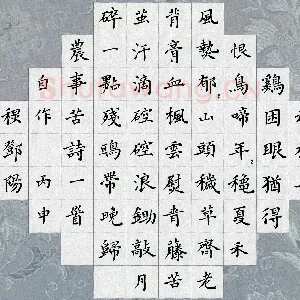 鷄困眼猶得
恨鳥啼年,穐夏禾
風熱郁,山頭穢草齊老
背音血楓雲慰青藤苦
茧汗滴硿硿浪鋤敲月
碎一點殘鴟帶晚歸
農事苦詩一首
自作丙申
鄧陽